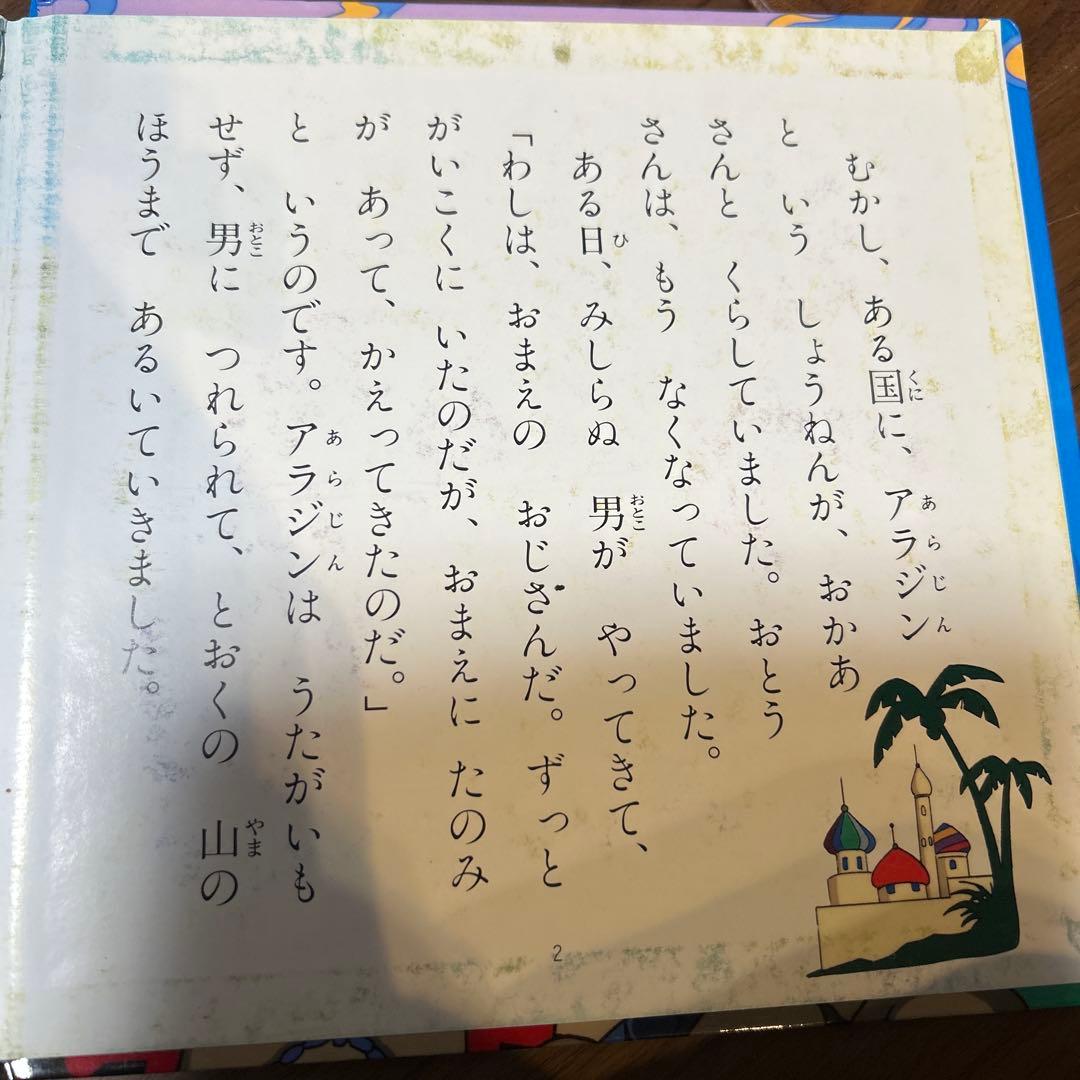 むかし、ある国に、アラジン
と いう しょうねんが、おかあ
さんと くらしていました。おとう
さんは、もう なくなっていました。
ある日、みしらぬ 男が やってきて、
「わしは、おまえの おじさんだ。ずっと
がいこくに いたのだが、おまえに たのみ
が あって、かえってきたのだ。」
と いうのです。アラジンは うたがいも
せず、男に つれられて、とおくの 山の
ほうまで あるいていきました。
くに
あらじん
ひ
おとこ
あらじん
おとこ
やま
2